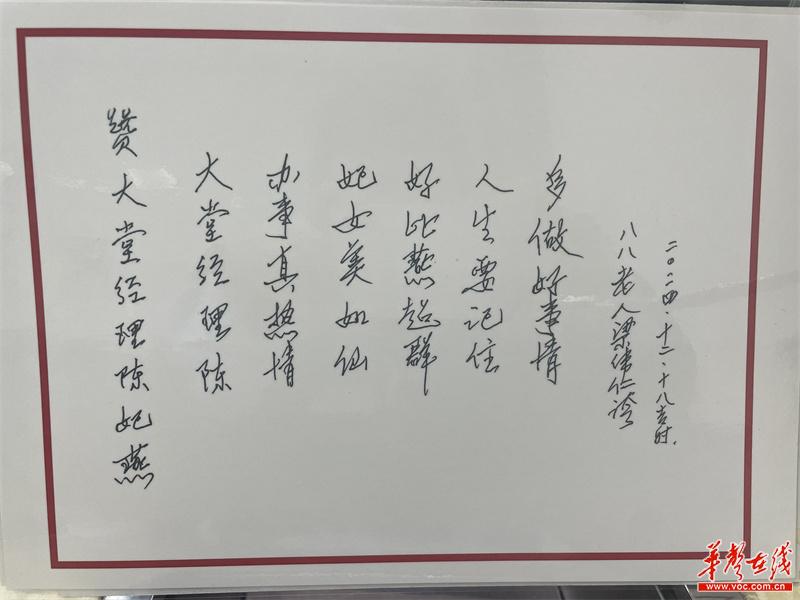 赞大堂经理陈妃燕
大堂经理陈
办事真热情
妃女美如仙
好比燕超群
人生要记住
多做好事情
八八老人梁伟仁谂
二〇二四.十二.十八吉时.
华声在线
www.voc.com.cn